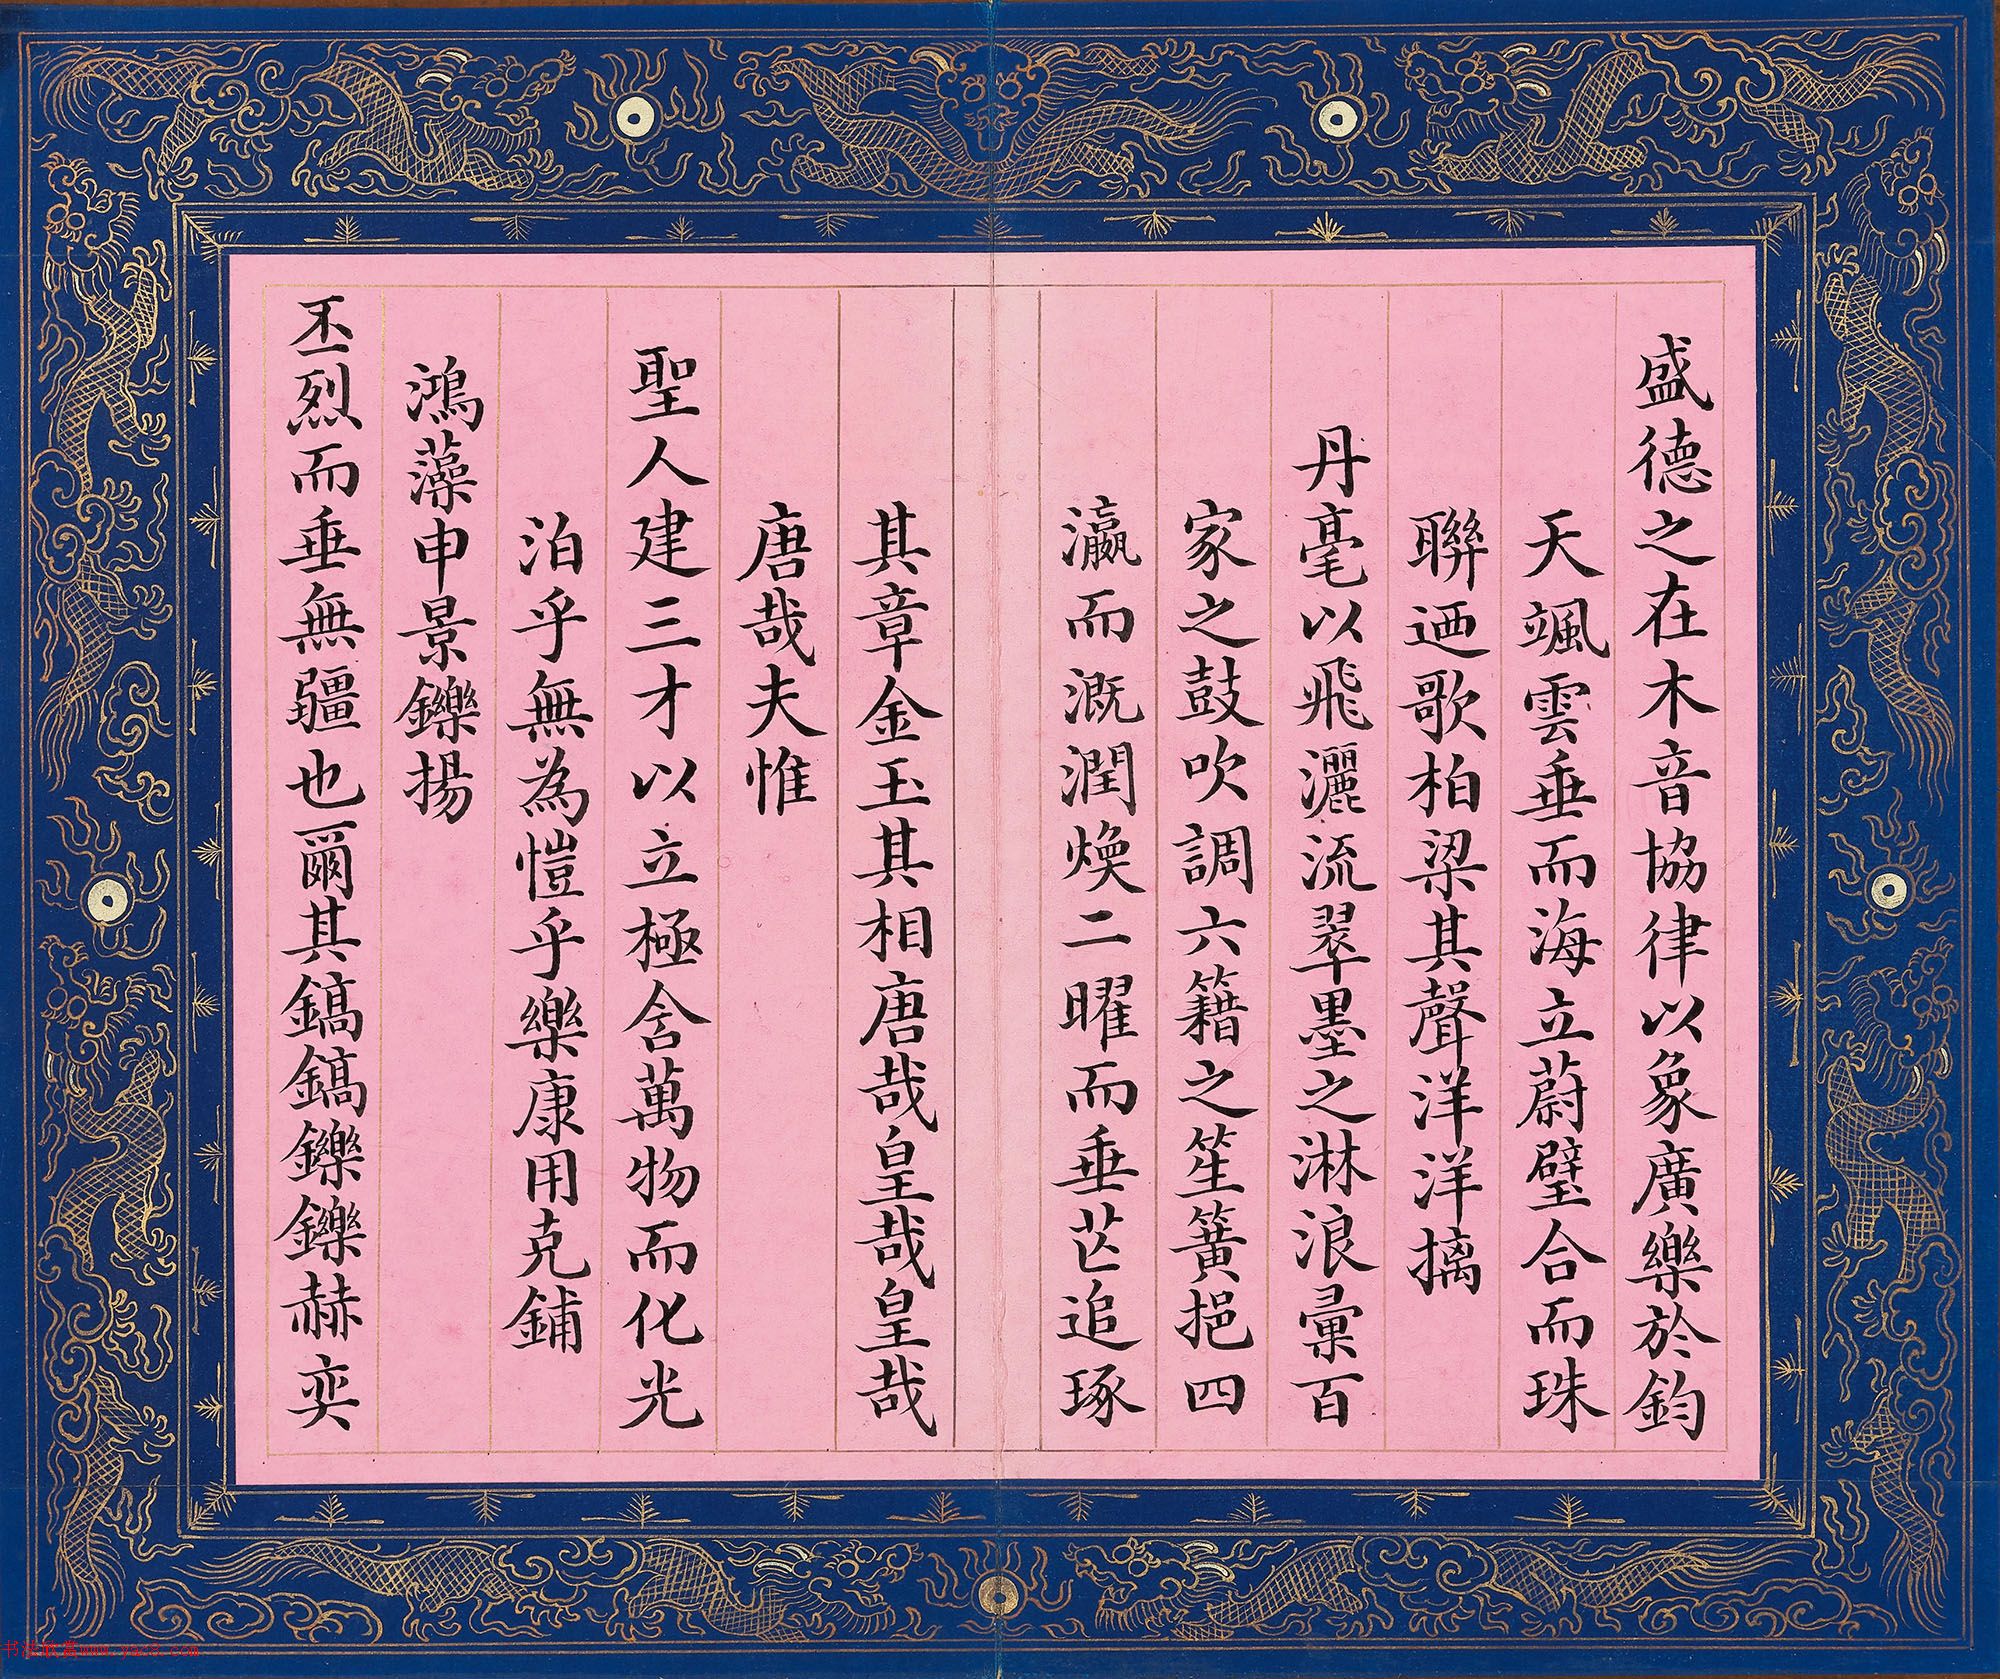 盛德之在木音協律以象廣樂於鈞
天颯雲垂而海立蔚璧合而珠
聯迺歌柏梁其聲洋洋摛
丹毫以飛灑流翠墨之淋浪彙百
家之鼓吹調六籍之笙簧挹四
瀛而溉潤煥二曜而垂芒追琢
其章金玉其相唐哉皇哉皇哉
唐哉夫惟
聖人建三才以立極含萬物而化光
泊乎無為愷乎樂康用克鋪
鴻藻申景鑠揚
丕烈而垂無疆也爾其鎬鎬鑠鑠赫奕
书法欣赏www.yac8.com